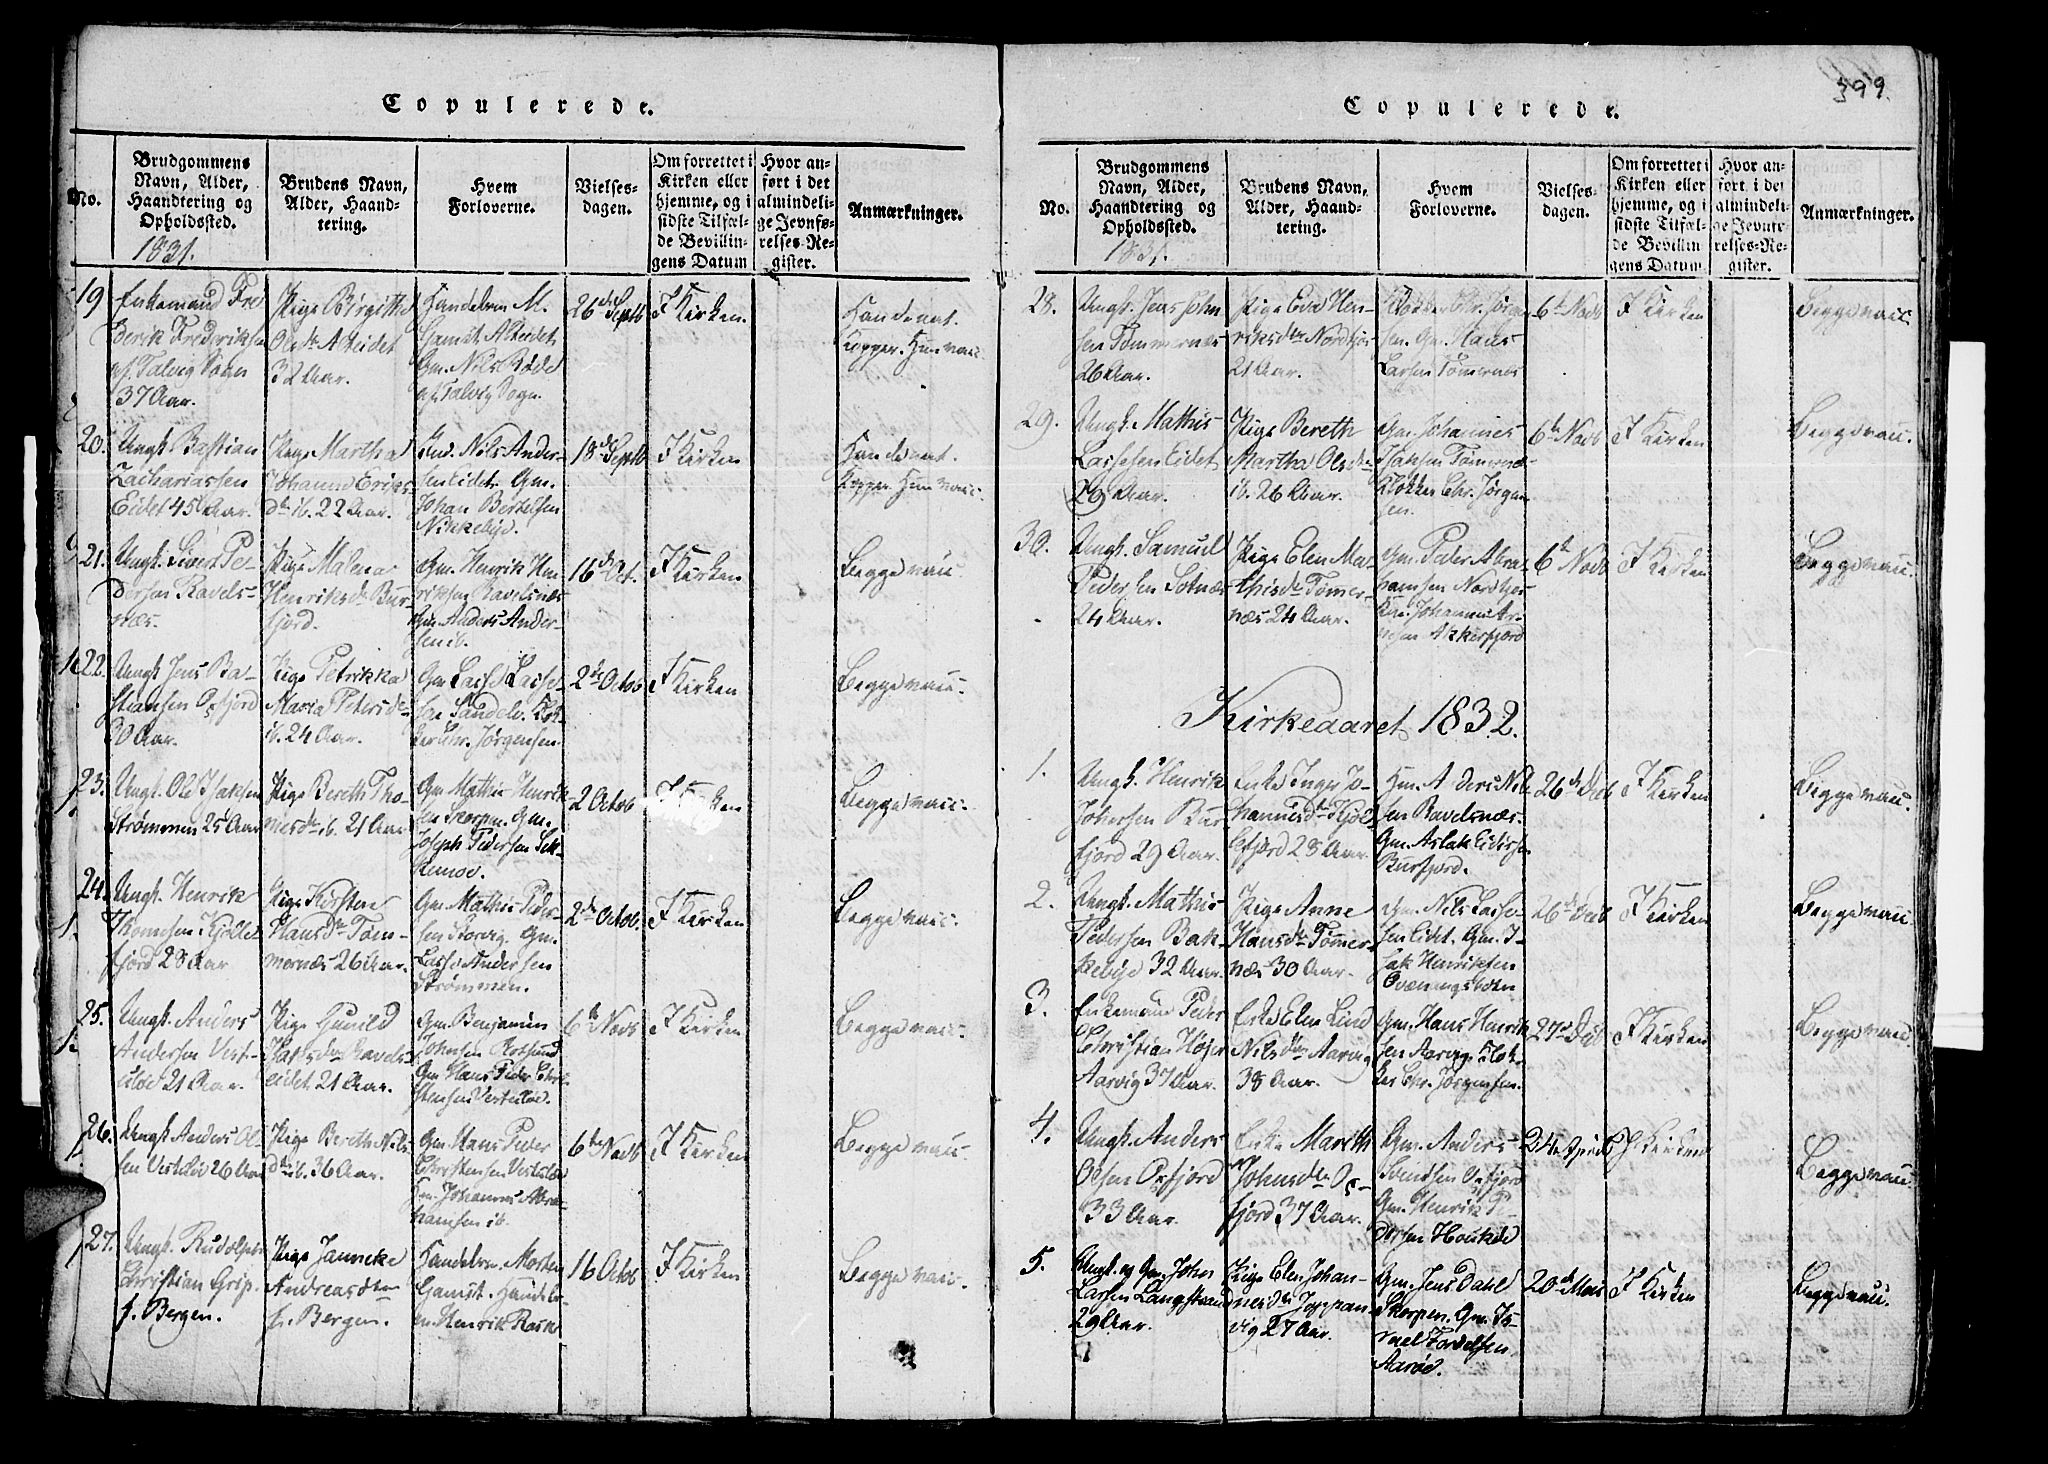 Copulerede.
No.
Brudgommens Navn, Alder, Haandtering og Opholdssted.
Brudens Navn, Alder, Haandtering.
Hvem Forloverne.
Vielsesdagen.
Om forrettet i Kirken eller hjemme, og i sidste Tilfælde Bevillingens Datum
Hvor anført i det almindelige Jevnførelses-Register.
Anmærkninger.
1831.
19
Enkemand Fre
derik Frederiksen
af Talvig Sogn
37 Aar.
Pige Birgitthe
Olsdr Alteidet
32 Aar.
Handelsm M.
Gamst Alteidet
Gm. Nils Bødd
af Talvig Sogn.
26de Septb
I Kirken.
Han de nat.
Kopper. Hun vacc.
20.
Ungk. Bastian
Zachariassen
Eidet 45 Aar.
Pige Martha
Johanna Eriks
dr ib. 22 Aar.
Nils Ander-
sen Eidet. Gm.
Johan Bertelsen
Nikkebÿe.
18de Septb
I Kirken
Han de nat.
Kopper. Hun vacc.
21.
Ungk. Siver Pe-
dersen Ravels-
næs.
Pige Malena
Henriksdr Bur-
fjord.
Gm. Henrik Hen
riksen Ravelsnæs
Gm Anders Ander-
sen ib.
16de Oct.
I Kirken
Begge vacc.
22.
Ungk Jens Ba-
stiansen Oxfjord
30 Aar.
Pige Petrikka
Maria Petersdr
ib. 24 Aar.
Gm Lasse Lasse-
sen Sandelv. Klok-
ker Chr. Jørgensen.
2de Octob
I Kirken
Begge vacc.
23.
Ungk. Ole Isaksen
Strømmen 25 Aar
Pige Bereth Tho-
mesdr ib. 21 Aar
Gm Mathis Henrik
sen Skorpen. Gm.
Joseph Pedersen
2 Octob
I Kirken
Begge vacc.
24.
Ungk. Henrik
Thomesen Kjølle-
fjord 28 Aar
Pige Kirsten
Hansdr Tøm-
mernæs 26 Aar.
Gm. Mathis Peder-
sen Storvig. Gm.
Lasse Andersen
Strømmen.
2de Octob.
I Kirken
Begge vacc.
25.
Ungk. Anders
Andersen Vest-
eløe 21 Aar.
Pige Gunild
Isaksdr Ravels-
eidet 21 Aar.
Gm. Benjamin
Johnsen Rotsund
Gm Hans Peder Chri-
stensen Vorteløe.
6te Novb
I Kirken
Begge vacc.
26.
Ungk Anders Ol-
sen Vorteløe 26 Aar
Pige Bereth Nils-
dr ib. 36 Aar.
Gm. Hans Peder
Christensen Vorteløe
Gm. Johannes Abra-
hamsen ib.
6te Novb
I Kirken
Begge vacc.
27.
Ungk. Rudolph
Christian Grip
f. Bergen.
Pige Janneke
Andreasdr
fr. Bergen.
Handelsm. Morten
Gamst. Handels-
m Henrik Rasch
16 Octob
I Kirken
Begge vacc.
Copulerede.
399.
No.
Brudgommens Navn, Alder, Haandtering og Opholdssted.
Brudens Navn, Alder, Haandtering.
Hvem Forloverne.
Vielsesdagen.
Om forrettet i Kirken eller hjemme, og i sidste Tilfælde Bevillingens Datum
Hvor anført i det almindelige Jevnførelses-Register.
Anmærkninger.
1831.
28.
Ungk. Jens John
sen Tømmernæs
26 Aar.
Pige Eva Hen-
riksdr Nordkjos
21 Aar.
Klokker Chr. Jørgen
sen. Gm. Hans
Larsen Tømernes
6te Novb
I Kirken
Begge vacc.
29.
Ungk. Mathis
Lassesen Eidet
29 Aar.
Pige Bereth
Martha Olsdr
ib. 26 Aar.
Gm. Johannes
Isaksen Tømernæs
Klokker Chr. Jørgen
sen.
6te Novb
I Kirken
Begge vacc.
30.
Ungk. Samuel
Pedersen Sotnæs
24 Aar.
Pige Elen Ma-
thisdr Tømer-
næs 24 Aar.
Gm. Peder Abra-
hamsen Nordkjos
Gm. Johannes Ar-
nesen Akkerfjord
6te Novb
I Kirken
Begge vacc.
Kirkeaaret 1832.
1.
Ungk. Henrik
Johnsen Bur
fjord 29 Aar.
Enke Inger Jo-
hannesdr Kjøl
lefjord 28 Aar.
Gm. Anders Nil
sen Ravelsnæs.
Gm. Aslak Eidesen
Burfjord.
26de Decb
I Kirken
Begge vacc.
2.
Ungk. Mathis
Pedersen Bak-
kebÿe 32 Aar.
Pige Anne
Hansdr Tømer-
næs 30 Aar.
Gm. Nils Lasse-
sen Eidet. Gm. I-
sak Henriksen
Qvænangsbotn
26de Decb
I Kirken
Begge vacc.
3.
Enkemand Peder
Christian Høyer
Aarvig 37 Aar.
Enke Elen Lind
Nilsdr Aarvig
38 Aar.
Gm. Hans Henrik
sen Aarvig. Klok-
ker Chr. Jørgensen.
27de Decb
I Kirken
Begge vacc.
4.
Ungk. Anders
Olsen Oxfjord
33 Aar.
Enke Marith
Johnsdr Ox-
fjord 37 Aar.
Gm. Anders
Svendsen Oxfjord
Gm. Henrik Pe-
dersen Houkøe
24de April
I Kirken
Begge vacc.
5.
Ungk. og Gm. John
Larsen Langstrand
29 Aar.
Pige Elen Johan-
nesdr Joppan-
vig 27 Aar.
Gm. Jens Dahl
Skorpen. Gm. Is-
rael Fordelsen
Aarøe.
20de Mai
I Kirken
Begge vacc.